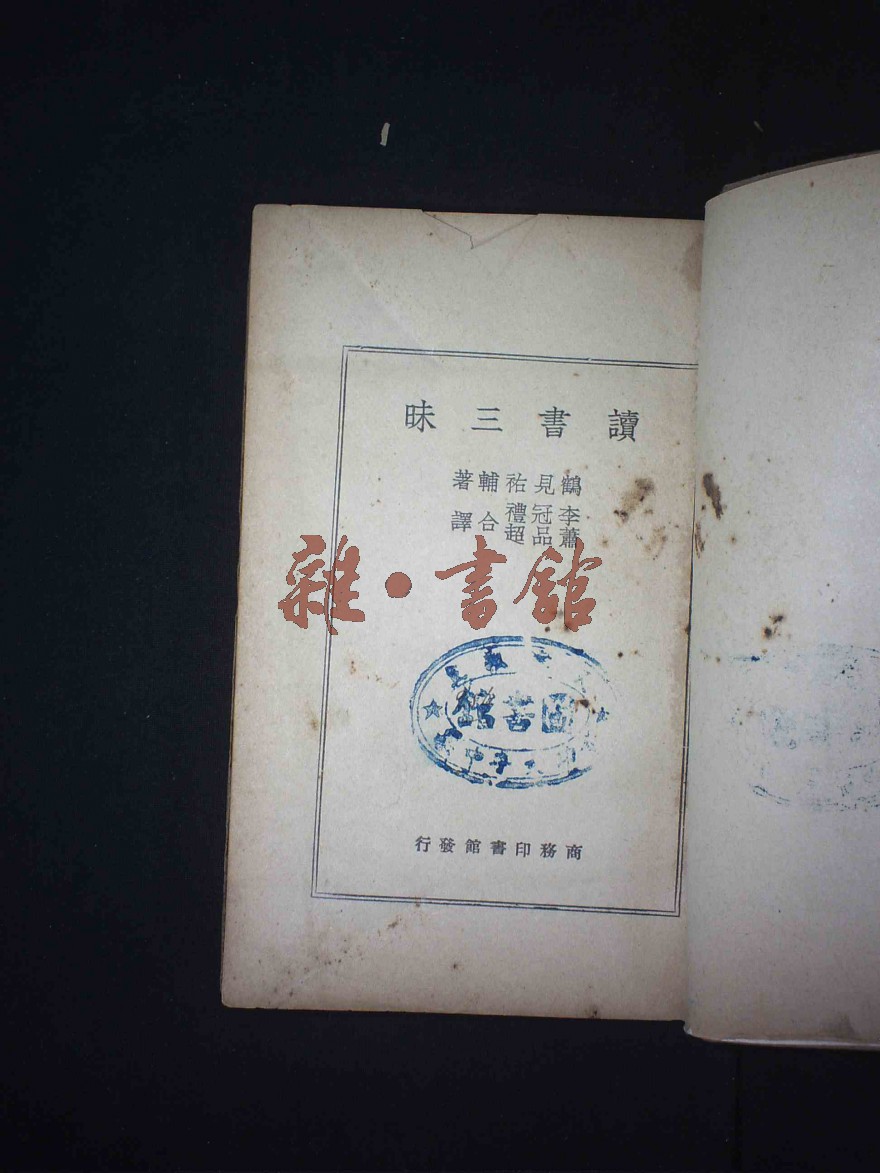 讀書三昧
鶴見祐輔著
李冠禮 蕭品超 合譯
雜·書館
圖書館
商務印書館發行